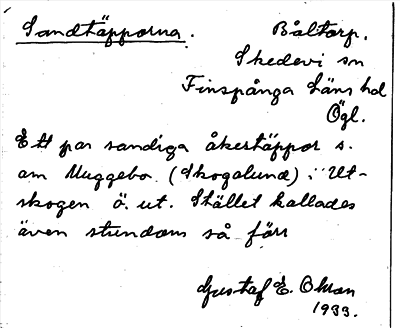 Sandtäpporna.
Båltorp.
Skedevi sn
Finspånga Läns hd
Ögl.
Ett par sandiga åkertäppor s.
om Muggebo (Skogalund) i "Ut-
skogen ö. ut. Stället kallades
även stundom så förr
Gustaf E. Ohson
1933.